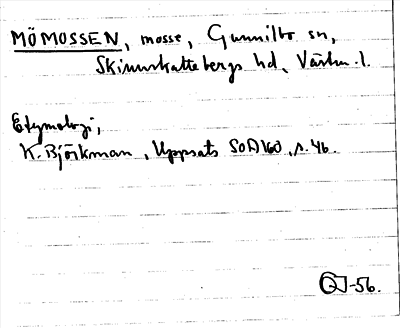 MÖMOSSEN, mosse, Gunnilbo sn,
Skinnskattebergs hd, Västm. l.
Etymologi,
K. Björkman, Uppsats SOÄ 160, s. 46.
-56.